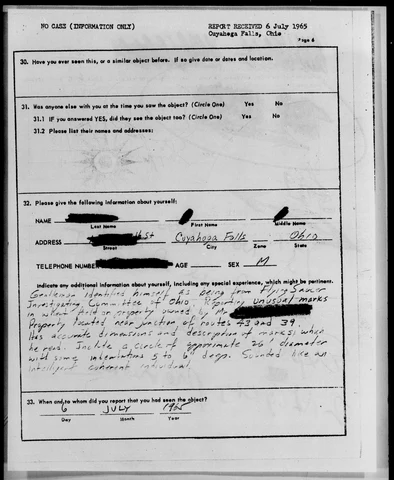 NO CASE (INFORMATION ONLY)
REPORT RECEIVED 6 July 1965
Cuyahoga Falls, Ohio
Page 6
30. Have you ever seen this, or a similar object before. If so give date or dates and location.
31. Was anyone else with you at the time you saw the object? (Circle One) Yes No
31.1 IF you answered YES, did they see the object too? (Circle One) Yes No
31.2 Please list their names and addresses:
32. Please give the following information about yourself:
NAME
Last Name First Name Middle Name
ADDRESS St Cuyahoga Falls Ohio
Street City Zone State
TELEPHONE NUMBER AGE SEX M
Indicate any additional information about yourself, including any special experience, which might be pertinent.
Gentleman identified himself as being from Flying Saucer
Investigating Committee of Ohio. Reporting unusual marks
in wheat field on property owned by Mr
Property located near junction of routes 43 and 39
Has accurate dimensions and description of marks; when
he read. Include a circle of approximate 26' diameter
with some indentations 5 to 6" deep. Sounded like an
intelligent coherent individual.
33. When and to whom did you report that you had seen the object?
6 JULY 1965
Day Month Year